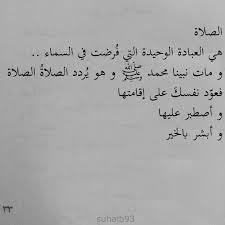 الصلاة
هي العبادة الوحيدة التي فُرضت في السماء ..
و مات نبينا محمد ﷺ و هو يُردد الصلاةُ الصلاة
فعوّد نفسكَ على إقامتها
و أصطبر عليها
و أبشر بالخير
٣٣
suhatb93